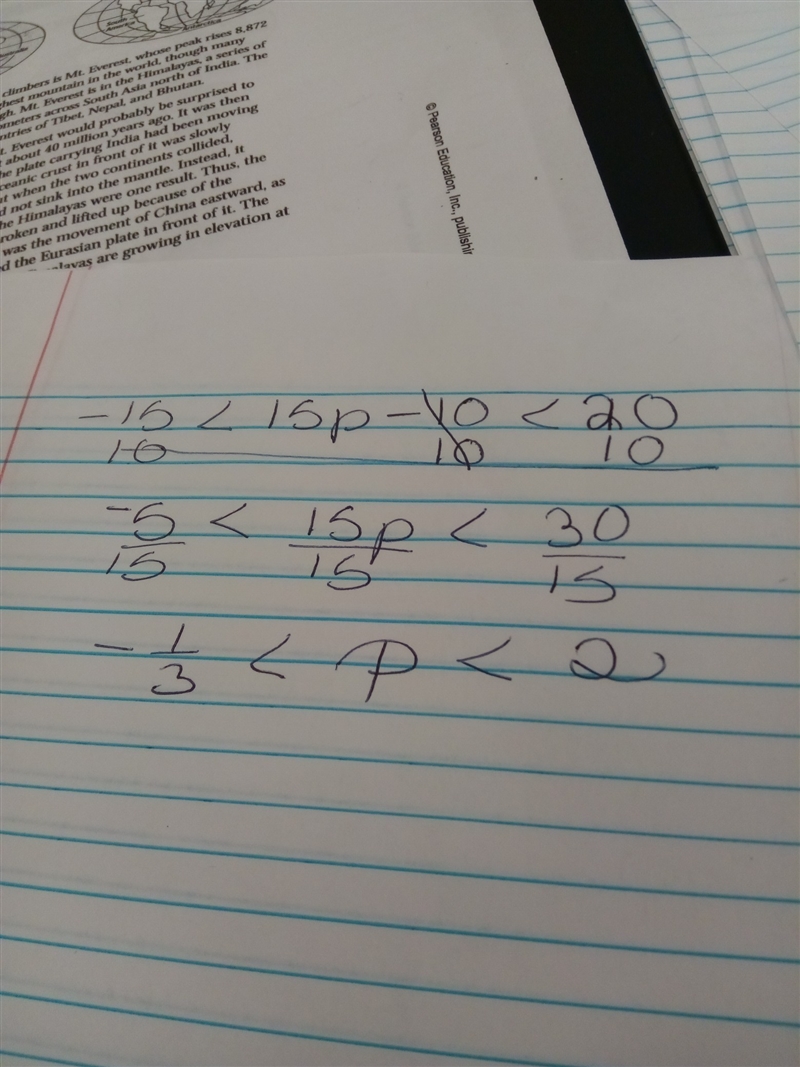 climbers is Mt. Everest, whose peak rises 8,872
ghest mountain in the world, though many
gh. Mt. Everest is in the Himalayas, a series of
ometers across South Asia north of India. The
ntries of Tibet, Nepal, and Bhutan.
t. Everest would probably be surprised to
t about 40 million years ago. It was then
he plate carrying India had been moving
ceanic crust in front of it was slowly
ut when the two continents collided,
d not sink into the mantle. Instead, it
he Himalayas were one result. Thus, the
roken and lifted up because of the
was the movement of China eastward, as
d the Eurasian plate in front of it. The
alayas are growing in elevation at
© Pearson Education, Inc., publishin
-15 < 15p - 10 < 20
10 10 10
-5 < 15p < 30
15 15 15
- 1/3 < p < 2